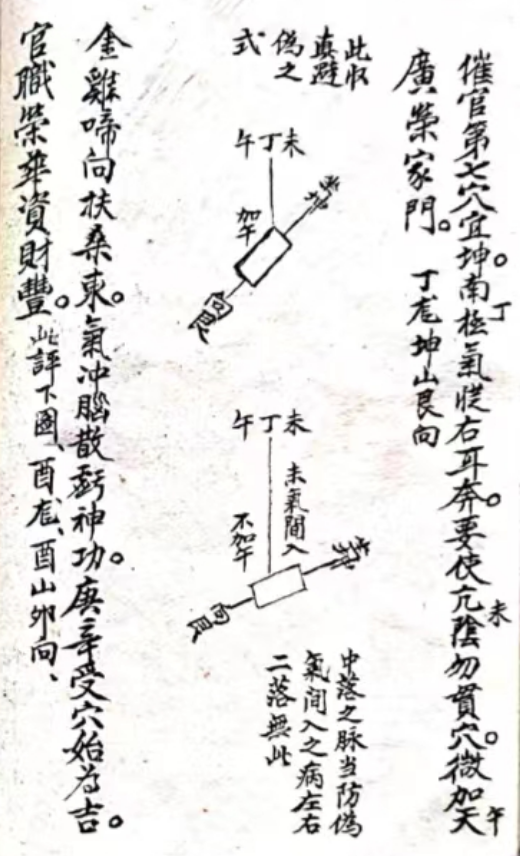 催官第七穴宜坤。南極氣從右耳奔。要使亢陰勿貫穴。微加天
丁
未
午
廣榮家門。 丁龙坤山艮向
此収
真避
偽之
式
午丁未
加午
坤
向艮
午丁未
未氣間入
不加午
坤
向艮
中落之脉当防偽
氣間入之病左右
二落無此
金雞啼向扶桑東。氣冲腦散虧神功。庚辛受穴始為吉。
官職榮華資財豐。此評下圖、酉龙、酉山卯向、